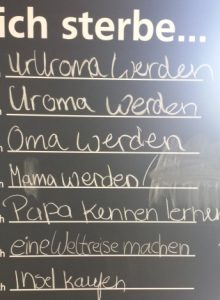 ich sterbe...
UrUroma werden
Uroma werden
Oma werden
Mama werden
Papa kennen lernen
eine Weltreise machen
Insel kaufen